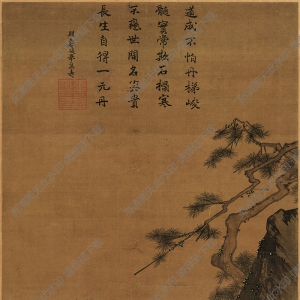 道成不怕丹梯峻
髓實常欺石榻寒
不戀世間名與貴
長生自得一元丹